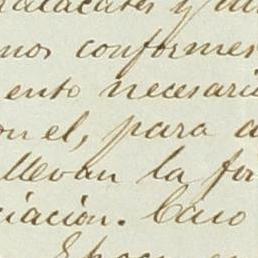 y
nos conformes
ento necesari
onel, para a
llevan la for
ciación. Caso